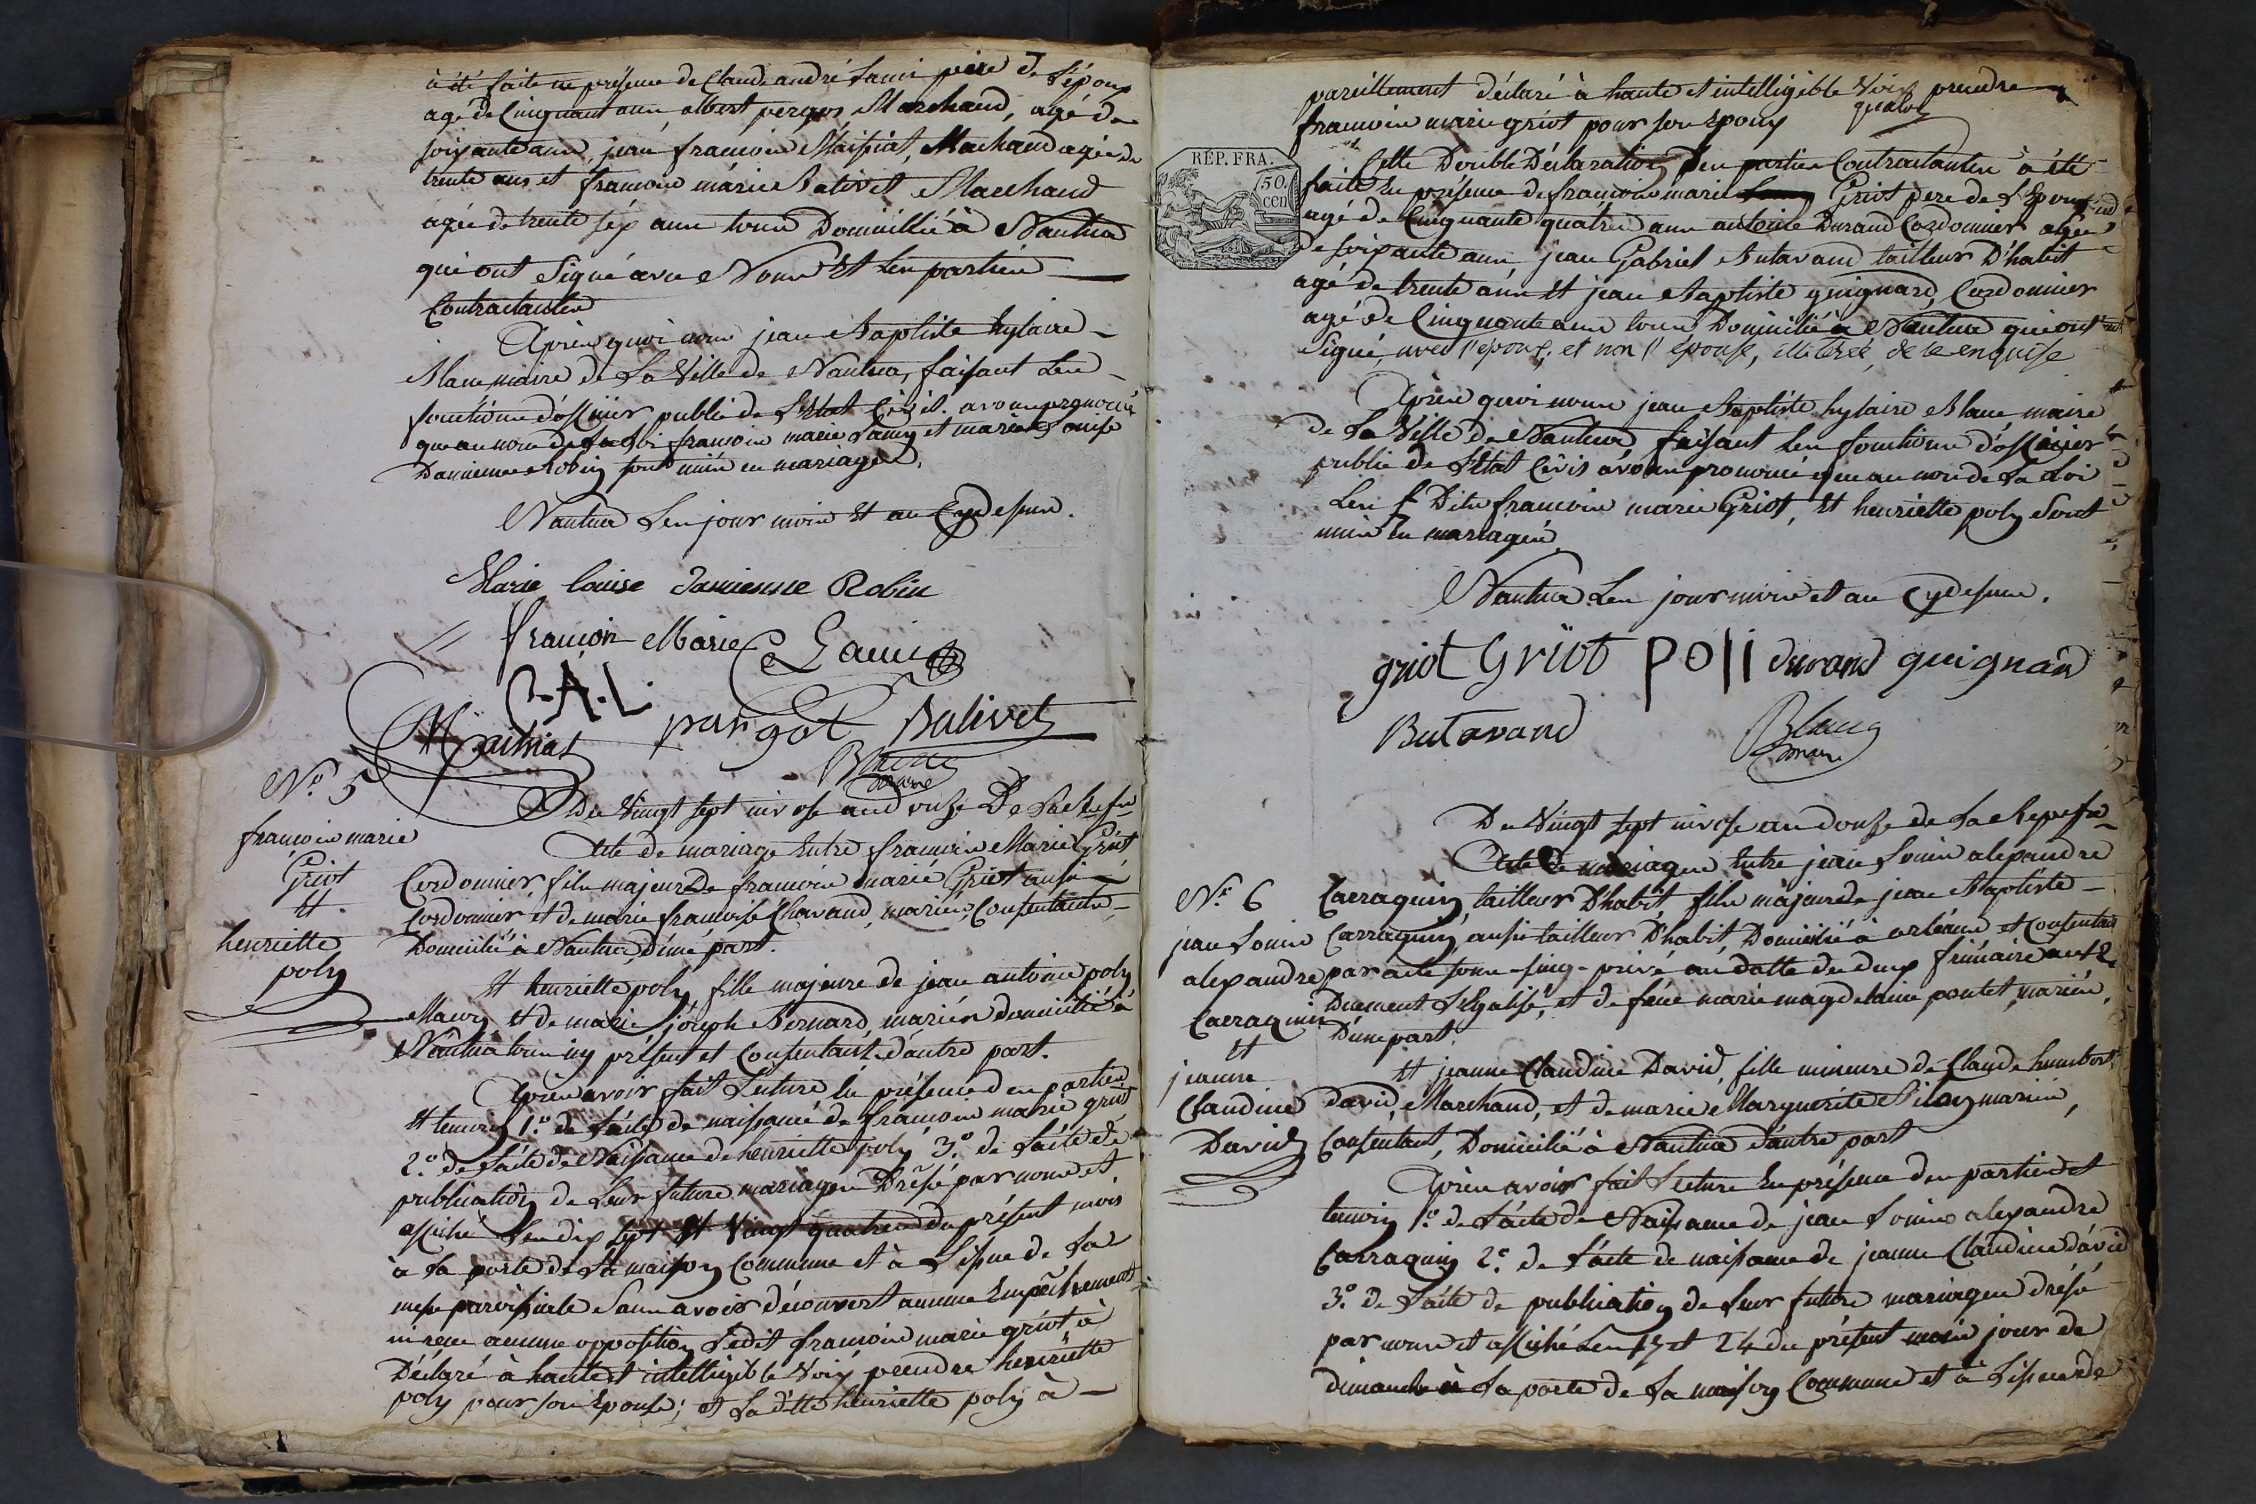 a été faite en présence de Claude andré Lami père de l'époux
agé de Cinquant ans albert pergos Marchand, agé de
soixante ans, jean francois Maissiat, Marchand agé de
trente ans et francois marie Balivet Marchand
agée de trente sép ans tous Domicillié à Nantua
qui ont Signé avec Nous Et les parties
Contractantes
Après quoi nous jean Baptiste hylaire
Blanc maire de La Ville de Nantua, faisant Les
fonctions d'officier public de L'Etat Civil. avons prononcé
que au nom de La Loi francois marie Lamy et marie Louise
Damienne Robin sont unis en mariages.
Nantua Les jour mois Et an Cydessus.
Marie louise Damienne Robin
francois Marie Lami
C. A. L.
Maissiat pargot Balivet
Blanc
maire
N.º 5
francois marie
Griot
Et
henriette
poly
Du Vingt sept nivose and ouze De La Rep fr
Acte de mariage Entre francois Marie Griot
Cordonnier, fils majeur De francois marié Griot aussi
Cordonnier et de marie francoise Chavand, mariés, Consentants
Domicilié à Nantua d'une part.
Et henriette poly, fille majeure de jean antoine poly
Et de marie joseph Bernard, mariés domicilié à
Nantua tous icy présent et Consentants d'autre part.
Après avoir fait Lecture En présence des parties
Et temoins 1.º de L'acte de naissance de francois marie griot
2.º de L'acte de Naissance de henriette poly 3.º de L'acte de
publication de Leur future mariages Dréssé par nous et
affiché Les dix sept Et Vingt quatre du présent mois
à La porte de La maison Commune et à L'issue de La
messe parroissiale Sans avoir découvert aucune Empêchement
ni recu aucune opposition L'edit francois marie griot à
Déclaré à haute et intelligible Voix prendre henriette
poly pour son Epouse; et Laditte henriette poly à
pareillement déclaré à haute et intelligible Voix prendre
francois marie griot pour son Epoux
RÉP. FRA.
50.
cen
Cette Double Déclaration Des parties Contractantes à été
faite En présence de francois marie Griot pere de L'Epoux
agé de Cinquante quatre ans antoine Durand Cordonnier agé
de soixante ans jean Gabriel Butavand tailleur D'habit
agé de trente ans Et jean Baptiste guignard, Cordonnier
agé de Cinquante ans tous Domicilié à Nantua qui ont
Signé avec l'époux, et non l'épouse, illiterée, de ce enquise
Après quoi nous jean Baptiste hylaire Blanc maire
de La Ville de Nantua faisant Les fonctions d'officier
public de L'Etat Civil avons prononcé que au nom de La Loi
Les S.r Dits francois marie Griot, Et henriette poly Sont
unis En mariages
Nantua Les jour mois et an Cydessus.
griot Griot poli durand guignard
Butavand Blanc
maire
Du Vingt sept nivose an douze de La Rep fr
Acte de mariages Entre jean Louis alexandre
N.º 6
jean Louis
alexandre
Carraquin
Et
jeanne
Claudine
David
Carraquin, tailleur D'habit fils majeur de jean Baptiste
Carraquin, aussi tailleur D'habit, Domicilié à orléans et Consentant
par acte sous-sing-privé en datte du deux frimaire an 12
Duement Légalisé, et de féue marie magdelaine pontet, mariés,
D'une part.
Et jeanne Claudine David, fille mineure de Claude humbert
David, Marchand, et de marie Marguerite mariés,
Consentant, Domicilié à Nantua d'autre part
Après avoir fait Lecture En présence des parties et
temoins 1.º de L'acte de Naissance de jean Louis alexandre
Carraquin 2.º de L'acte de naissance de jeanne Claudine david
3.º de L'acte de publication de Leur future mariages dréssé
par nous et affiché Les 17 et 24 du présent mois jour de
dimanche à La porte de La maison Commune et à L'issue de